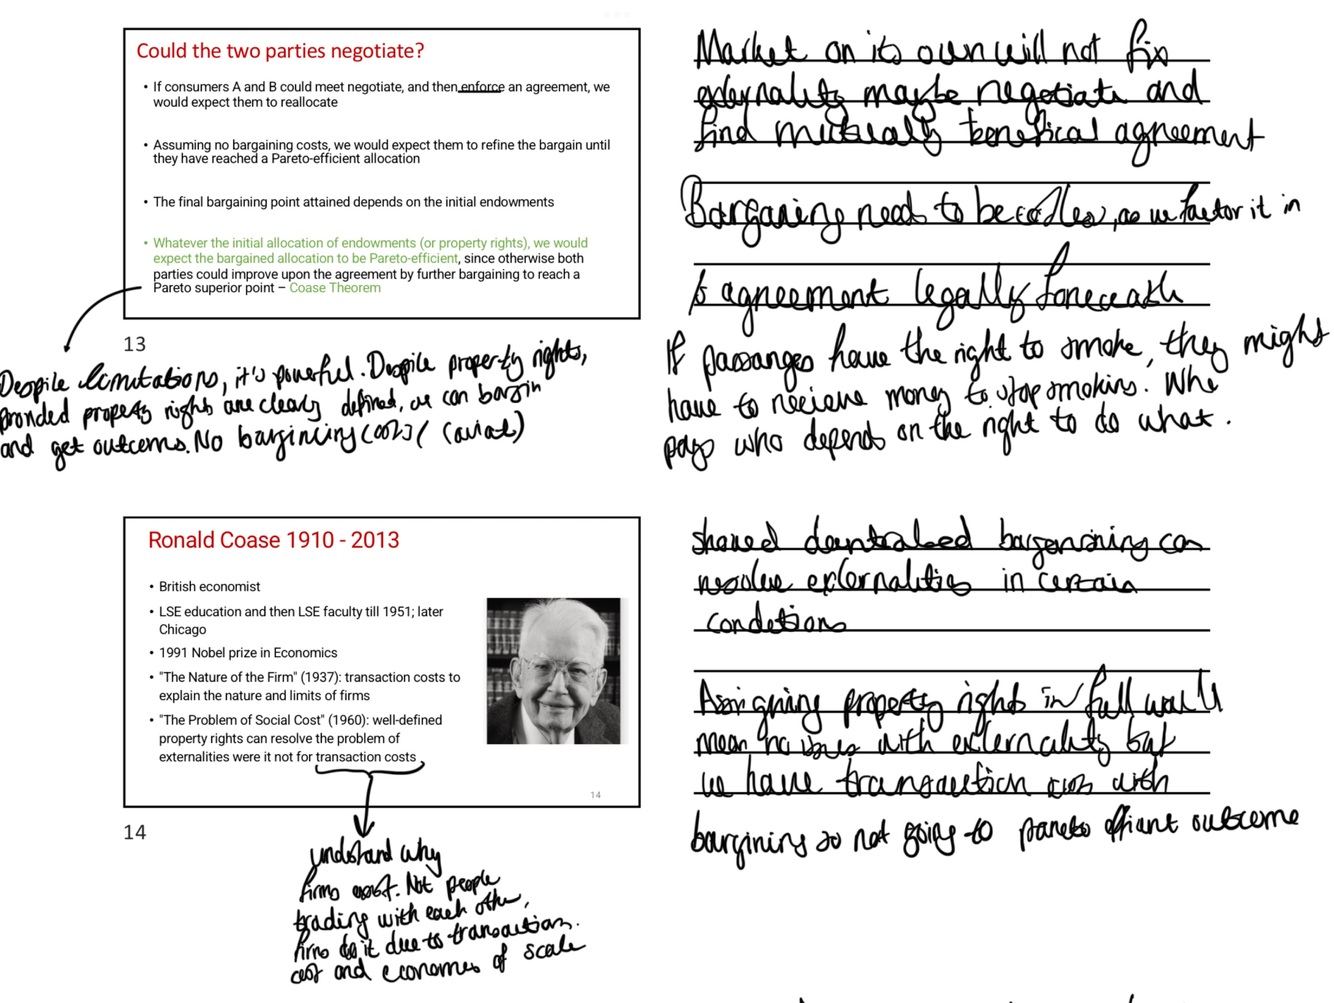 Could the two parties negotiate?
• If consumers A and B could meet negotiate, and then enforce an agreement, we
would expect them to reallocate
• Assuming no bargaining costs, we would expect them to refine the bargain until
they have reached a Pareto-efficient allocation
• The final bargaining point attained depends on the initial endowments
• Whatever the initial allocation of endowments (or property rights), we would
expect the bargained allocation to be Pareto-efficient, since otherwise both
parties could improve upon the agreement by further bargaining to reach a
Pareto superior point – Coase Theorem
13
Despite limitations, it's powerful. Despite property rights,
provided property rights are clearly defined, we can bargin
and get outcomes. No bargincing costs (
Market on its own will not fix
externality maybe negotiate and
find mutually benefical agreement
Bargaining need to be costless, as we factor it in
agreement legally
If passanges have the right to smoke, they might
have to recieve money to stop smoking. Who
pays who depends on the right to do what.
Ronald Coase 1910 - 2013
• British economist
• LSE education and then LSE faculty till 1951; later
Chicago
• 1991 Nobel prize in Economics
• "The Nature of the Firm" (1937): transaction costs to
explain the nature and limits of firms
• "The Problem of Social Cost" (1960): well-defined
property rights can resolve the problem of
externalities were it not for transaction costs
14
14
understand why
firms exist. Not people
trading with each other,
firms do it due to transaction
cost and economies of scale
showed decentralised bargaining can
resolve externalities in certain
conditions
Assigning property right in full would
mean no issues with externality but
we have transaction cost with
bargining so not going to pareto outcome